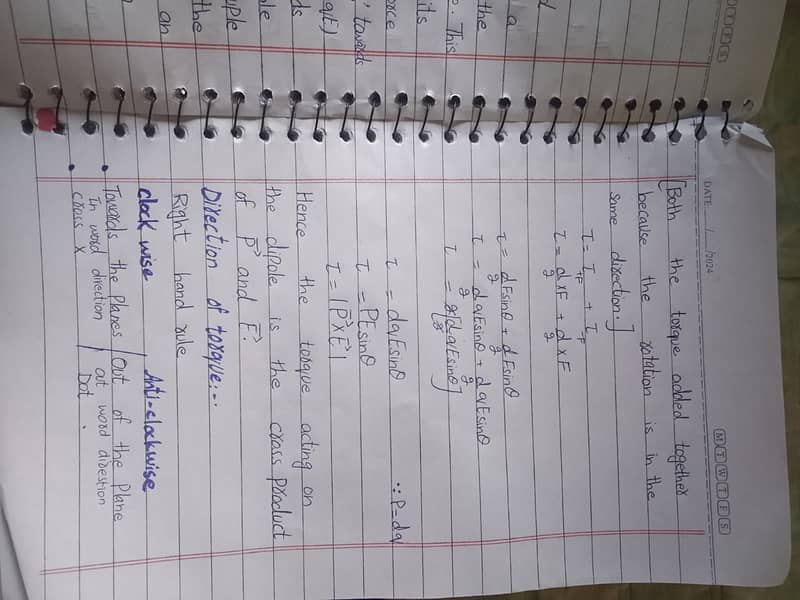 DATE: / /2024
M T W T F S
[Both the torque added together
because the rotation is in the
same direction.]
τ = τ+F + τ-F
τ = d/2 xF + d/2 xF
τ = d/2 Fsinθ + d/2 Fsinθ
τ = d/2 qEsinθ + d/2 qEsinθ
τ = 2/2 [dqEsinθ]
τ = dqEsinθ ∵ P=dq
τ = PEsinθ
τ = |P⃗ x E⃗|
Hence the torque acting on
the dipole is the cross product
of P⃗ and E⃗.
Direction of torque:-
Right hand rule
clockwise / Anti-clockwise
• Towards the Planes / Out of the Plane
In word direction / out word direction
• cross x Dot .
d
a
the
. This
its
orce
' towards
qE)
ds
ole
uple
the
an